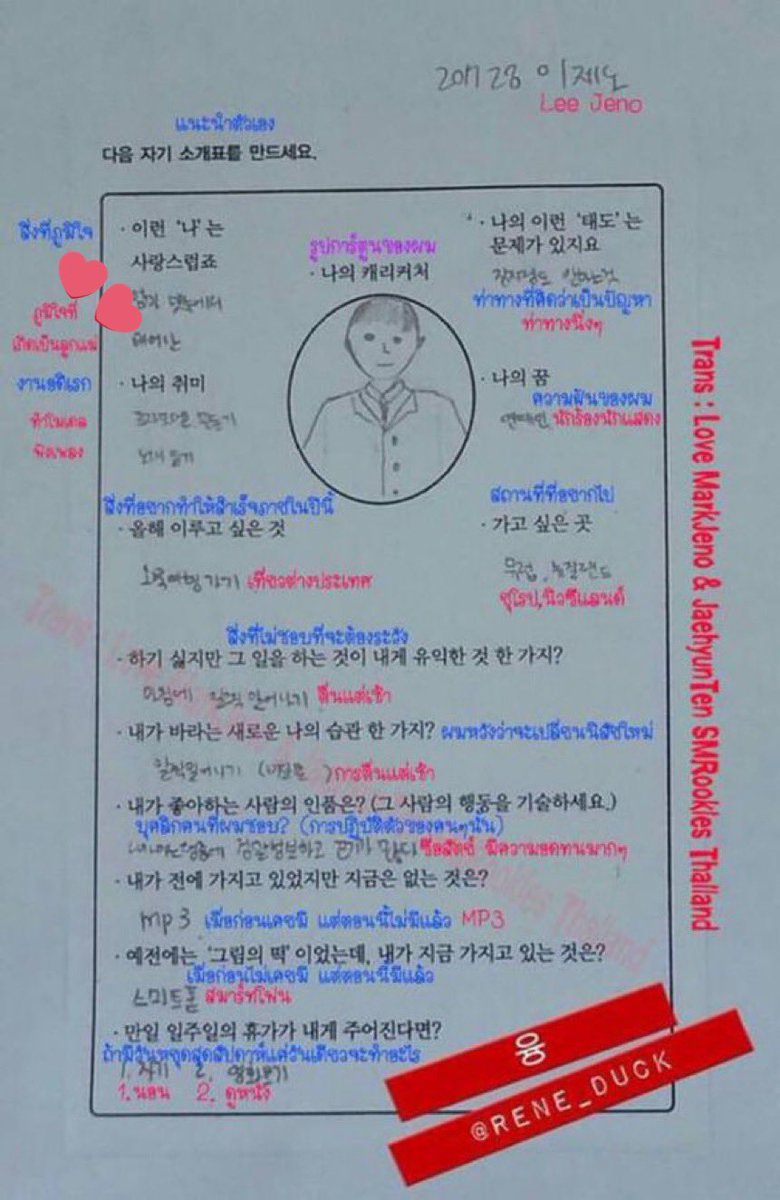 20728 이제노
Lee Jeno
แนะนำตัวเอง
다음 자기 소개표를 만드세요.
สิ่งที่ภูมิใจ
· 이런 ‘나’는
사랑스럽죠
ภูมิใจที่
เกิดเป็นลูกแม่
태어난
งานอดิเรก
· 나의 취미
ทำโมเดล
프라모델 만들기
ฟังเพลง
노래 듣기
รูปการ์ตูนของผม
· 나의 캐리커처
· 나의 이런 ‘태도’는
문제가 있지요
ท่าทางที่คิดว่าเป็นปัญหา
ท่าทางนิ่งๆ
· 나의 꿈
ความฝันของผม
연예인 นักร้องนักแสดง
สิ่งที่อยากทำให้สำเร็จภายในปีนี้
· 올해 이루고 싶은 것
가기 เที่ยวต่างประเทศ
สถานที่ที่อยากไป
· 가고 싶은 곳
유럽, 뉴질랜드
ยุโรป,นิวซีแลนด์
สิ่งที่ไม่ชอบที่จะต้องระวัง
· 하기 싫지만 그 일을 하는 것이 내게 유익한 것 한 가지?
아침에 일찍 일어나기 ตื่นแต่เช้า
· 내가 바라는 새로운 나의 습관 한 가지? ผมหวังว่าจะเปลี่ยนนิสัยใหม่
일찍 일어나기 การตื่นแต่เช้า
· 내가 좋아하는 사람의 인품은? (그 사람의 행동을 기술하세요.)
บุคลิกคนที่ผมชอบ? (การปฏิบัติตัวของคนๆนั้น)
ซื่อสัตย์ มีความอดทนมากๆ
· 내가 전에 가지고 있었지만 지금은 없는 것은?
mp3 เมื่อก่อนเคยมี แต่ตอนนี้ไม่มีแล้ว MP3
· 예전에는 ‘그림의 떡’이었는데, 내가 지금 가지고 있는 것은?
เมื่อก่อนไม่เคยมี แต่ตอนนี้มีแล้ว
스마트폰 สมาร์ทโฟน
· 만일 일주일의 휴가가 내게 주어진다면?
ถ้ามีวันหยุดสุดสัปดาห์แค่วันเดียวจะทำอะไร
1. 자기 2. 영화보기
1.นอน 2. ดูหนัง
Trans : Love MarkJeno & JaehyunTen SMRookies Thailand
웅
@RENE_DUCK